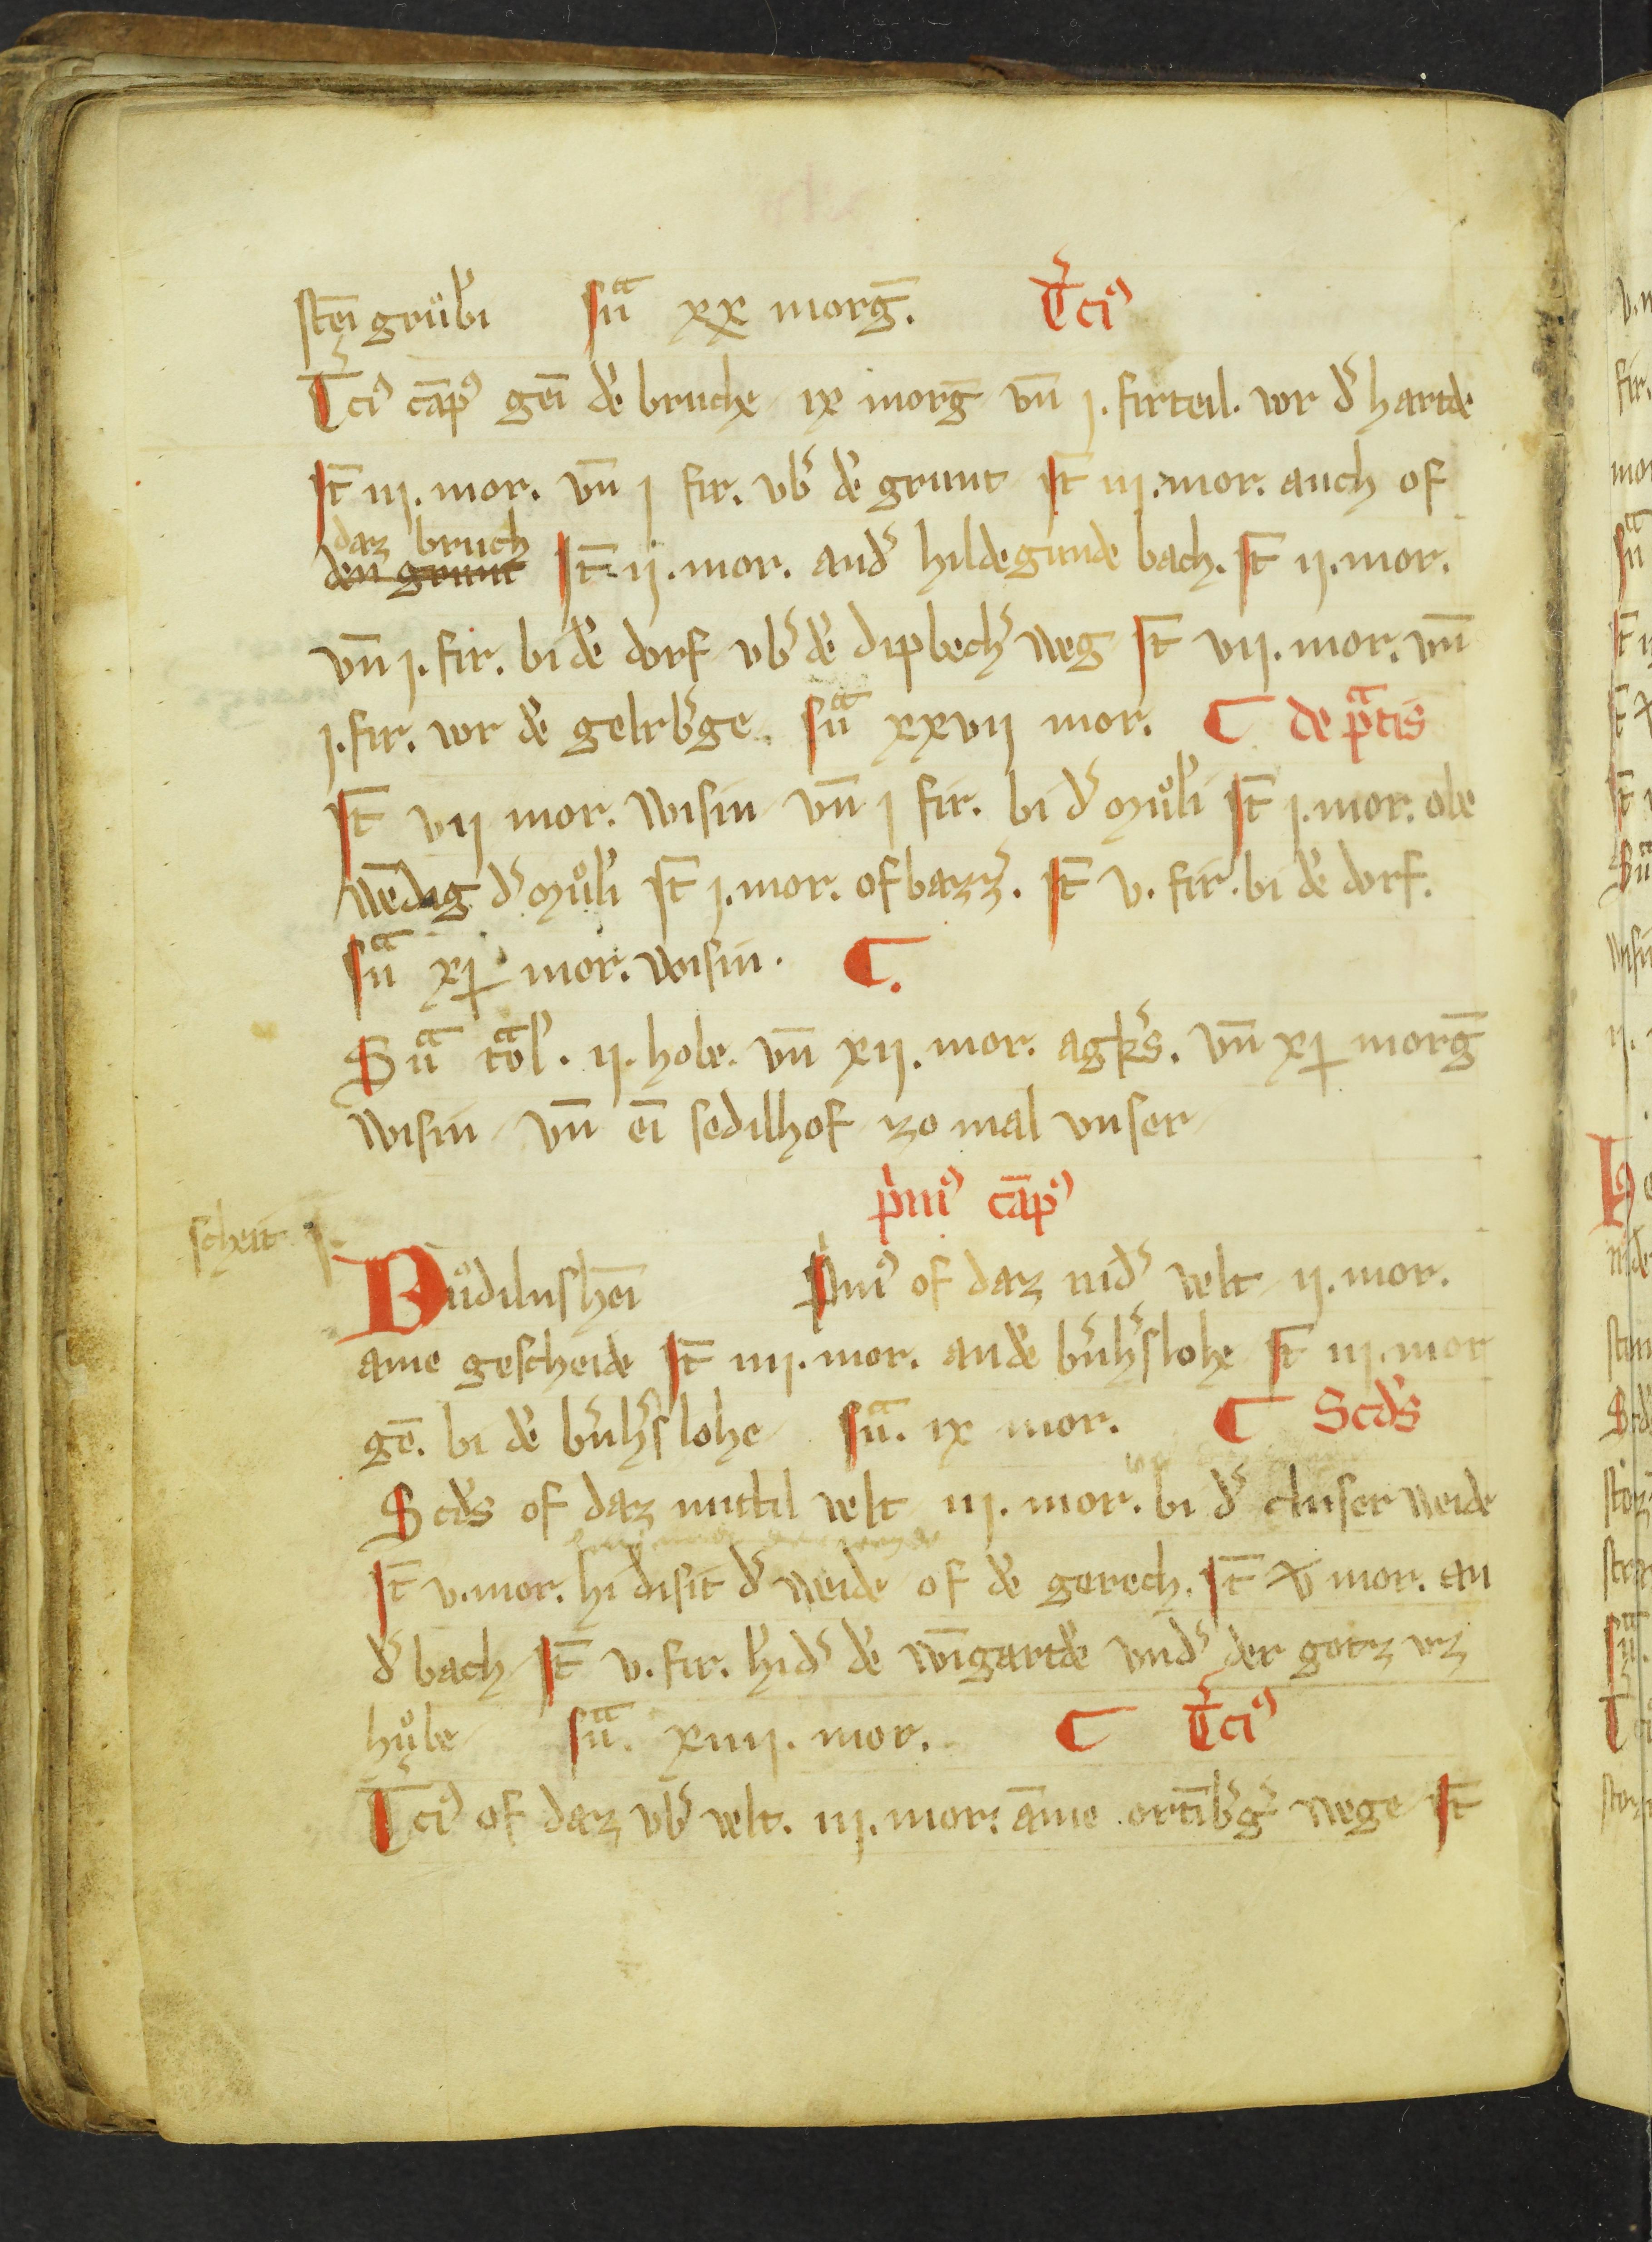 stēi grůbͥ sūᵃ xx morḡ. T̄ciꝰ
T̄ciꝰ cāpꝰ gēi dē bruche ix morḡ vn̄ j. firteil. vor d᷑ hartdē
st̄ iij. mor. vn̄ j fir. vb᷑ dē grunt st̄ iij. mor. auch of
daz bruch
den grunt st̄ ij. mor. and᷑ hildegunde bach. st̄ ij. mor.
vn̄ j. fir. bi dē dorf vb᷑ dē dipbech᷑ weg st̄ vij. mor. vn̄
j. fir. vor dē gelrb᷑ge. sūᵃ xxvij mor. ¶ de pᵃtis
st̄ vij mor. wisin vn̄ j fir. bi d᷑ můli st̄ j. mor. obe
wēdig d᷑ můli st̄ j. mor. of bazz᷑. st̄ v. fir. bi dē dorf.
sūᵃ xj mor. wisin. ¶.
Sūᵃ toᵃl. ij. hobe. vn̄ xij. mor. agk᷑s. vn̄ xj morḡ
wisin vn̄ eī sedilhof zo mal vnser
pͥmꝰ cāpꝰ
scheit
Bůdilnsheī pͥmꝰ of daz nid᷑ velt ij. mor.
ame gescheide st̄ iiij. mor. an dē b᷑nh᷑slohe st̄ iij. mor
gē. bi dē b᷑nh᷑s lohe sūᵃ. ix mor. ¶ Scd᷑s
Scd᷑s of daz mittil velt iij. mor. bi d᷑ cluser weide
st̄ v. mor. hi disit d᷑ weide of dē gerech. st̄ v mor. an
d᷑ bach st̄ v. fir. hīd᷑ dē wīgartdē vnd᷑ der gotz vz
hůbe sūᵃ. xiiij. mor. ¶ T̄ciꝰ
T̄ciꝰ of daz vb᷑ velt. iij. mor. āme ortīb᷑g᷑ wege st̄